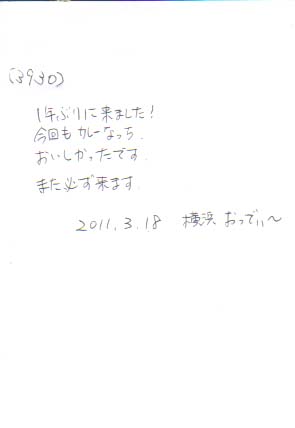 (3930)
1年ぶりに来ました!
今回もカレーなっち.
おいしかったです.
また必ず来ます.
2011.3.18 横浜 おっでぃ〜